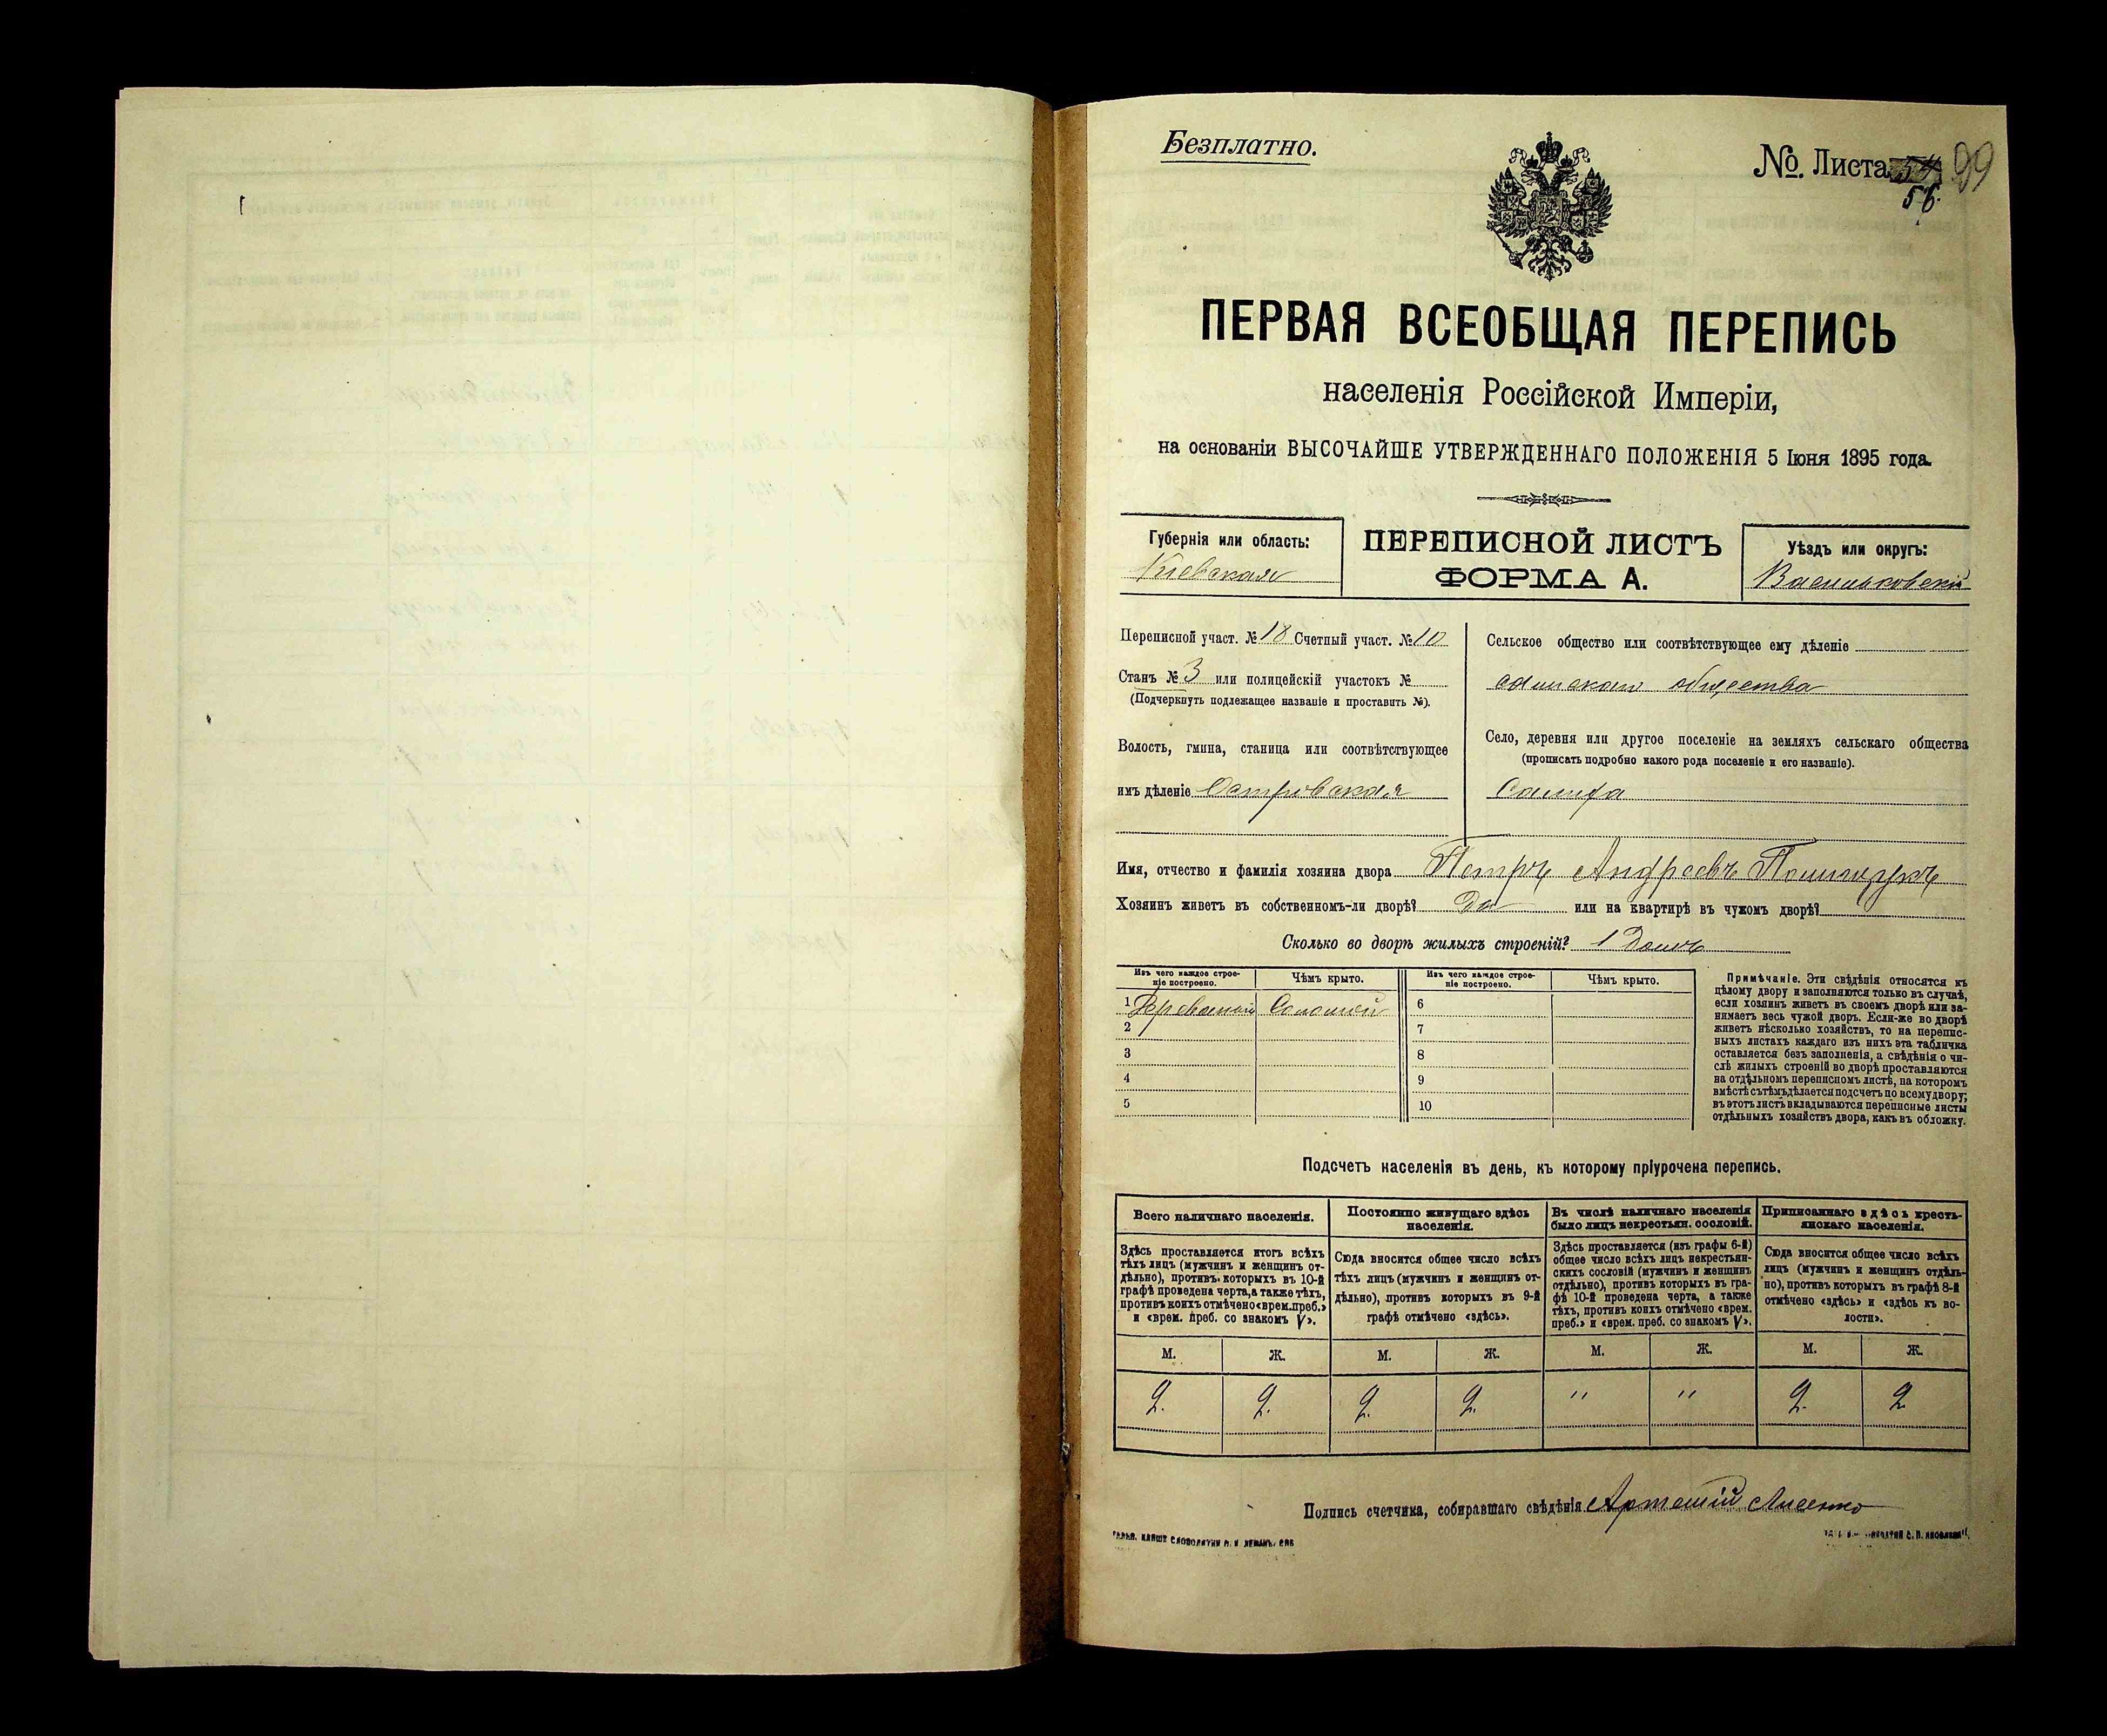 Безплатно.
№. Листа 54 99
56.
ПЕРВАЯ ВСЕОБЩАЯ ПЕРЕПИСЬ
населенія Россійской Имперіи,
на основаніи ВЫСОЧАЙШЕ УТВЕРЖДЕННАГО ПОЛОЖЕНІЯ 5 Іюня 1895 года.
Губернія или область:
Кіевская
ПЕРЕПИСНОЙ ЛИСТЪ
ФОРМА А.
Уѣздъ или округъ:
Васильковскій
Переписной участ. № 18 Счетный участ. № 10
Станъ № 3 или полицейскій участокъ №
(Подчеркнуть подлежащее названіе и проставить №).
Волость, гмина, станица или соотвѣтствующее
имъ дѣленіе Островская
Сельское общество или соотвѣтствующее ему дѣленіе
общества
Село, деревня или другое поселеніе на земляхъ сельскаго общества
(прописать подробно какого рода поселеніе и его названіе).
Имя, отчество и фамилія хозяина двора Петръ Андреевъ
Хозяинъ живетъ въ собственномъ-ли дворѣ? Да или на квартирѣ въ чужомъ дворѣ?
Сколько во дворѣ жилыхъ строеній? 1 Домъ
Изъ чего каждое строе-
ніе построено.
Чѣмъ крыто.
Изъ чего каждое строе-
ніе построено.
Чѣмъ крыто.
1 Деревянный Соломой 6
2 7
3 8
4 9
5 10
Примѣчаніе. Эти свѣдѣнія относятся къ
цѣлому двору и заполняются только въ случаѣ,
если хозяинъ живетъ въ своемъ дворѣ или за-
нимаетъ весь чужой дворъ. Если-же во дворѣ
живетъ нѣсколько хозяйствъ, то на перепис-
ныхъ листахъ каждаго изъ нихъ эта табличка
оставляется безъ заполненія, а свѣдѣнія о чи-
слѣ жилыхъ строеній во дворѣ проставляются
на отдѣльномъ переписномъ листѣ, на которомъ
вмѣстѣ съ тѣмъ дѣлается подсчетъ по всему двору;
въ этотъ листъ вкладываются переписные листы
отдѣльныхъ хозяйствъ двора, какъ въ обложку.
Подсчетъ населенія въ день, къ которому пріурочена перепись.
Всего наличнаго населенія.
Здѣсь проставляется итогъ всѣхъ
тѣхъ лицъ (мужчинъ и женщинъ от-
дѣльно), противъ которыхъ въ 10-й
графѣ проведена черта, а также тѣхъ,
противъ коихъ отмѣчено «врем. преб.»
и «врем. преб. со знакомъ V».
Постоянно живущаго здѣсь
населенія.
Сюда вносится общее число всѣхъ
тѣхъ лицъ (мужчинъ и женщинъ от-
дѣльно), противъ которыхъ въ 9-й
графѣ отмѣчено «здѣсь».
Въ числѣ наличнаго населенія
было лицъ некрестьян. сословій.
Здѣсь проставляется (изъ графы 6-й)
общее число всѣхъ лицъ некрестьян-
скихъ сословій (мужчинъ и женщинъ
отдѣльно), противъ которыхъ въ гра-
фѣ 10-й проведена черта, а также
тѣхъ, противъ коихъ отмѣчено «врем.
преб.» и «врем. преб. со знакомъ V».
Приписаннаго здѣсь кресть-
янскаго населенія.
Сюда вносится общее число всѣхъ
лицъ (мужчинъ и женщинъ отдѣль-
но), противъ которыхъ въ графѣ 8-й
отмѣчено «здѣсь» и «здѣсь къ во-
лости».
М. Ж. М. Ж. М. Ж. М. Ж.
2. 2. 2. 2. " " 2. 2
Подпись счетчика, собиравшаго свѣдѣнія Артемій Лисенко